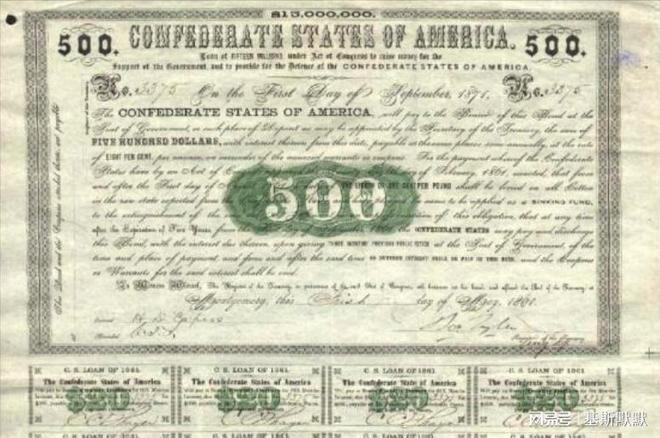 $15,000,000.
500. CONFEDERATE STATES OF AMERICA. 500.
Loan of FIFTEEN MILLIONS, under Act of Congress to raise money for the
Support of the Government, and to provide for the Defence of the CONFEDERATE STATES OF AMERICA.
No. 3375 On the First Day of September, 1871. No. 3375
The CONFEDERATE STATES OF AMERICA, will pay to the Bearer of this Bond at the
Seat of Government, or such place of Deposit as may be appointed by the Secretary of the Treasury, the sum of
FIVE HUNDRED DOLLARS, with interest thereon from this date, payable at the same places semi-annually, at the rate
of EIGHT PER CENT. per annum, on surrender of the annexed coupons. For the payment whereof the Confederate
States have by an Act of February, 1861, enacted, that from
and after the First day of PER POUND shall be levied on all Cotton
in the raw state exported from to be applied as a SINKING FUND,
to the extinguishment of the of this obligation, that at any time
after the Expiration of Five Years from CONFEDERATE STATES may pay and discharge
this Bond, with the interest due thereon, upon giving THREE MONTHS' PREVIOUS PUBLIC NOTICE at the Seat of Government, of the
time and place of payment, and from and after the said time NO FURTHER INTEREST SHALL BE PAID ON THIS BOND, and the Coupons
or Warrants for the said interest shall be void.
In Witness Whereof, The Register of the Treasury, in pursuance of the said Act of Congress, the Seal of the Treasury at
Montgomery, this First day of May, 1861.
500
C. S. LOAN OF 1861. C. S. LOAN OF 1861. C. S. LOAN OF 1861. C. S. LOAN OF 1861.
The Confederate States of America The Confederate States of America The Confederate States of America The Confederate States of America
$20 $20 $20 $20
搜狐号@基斯默默